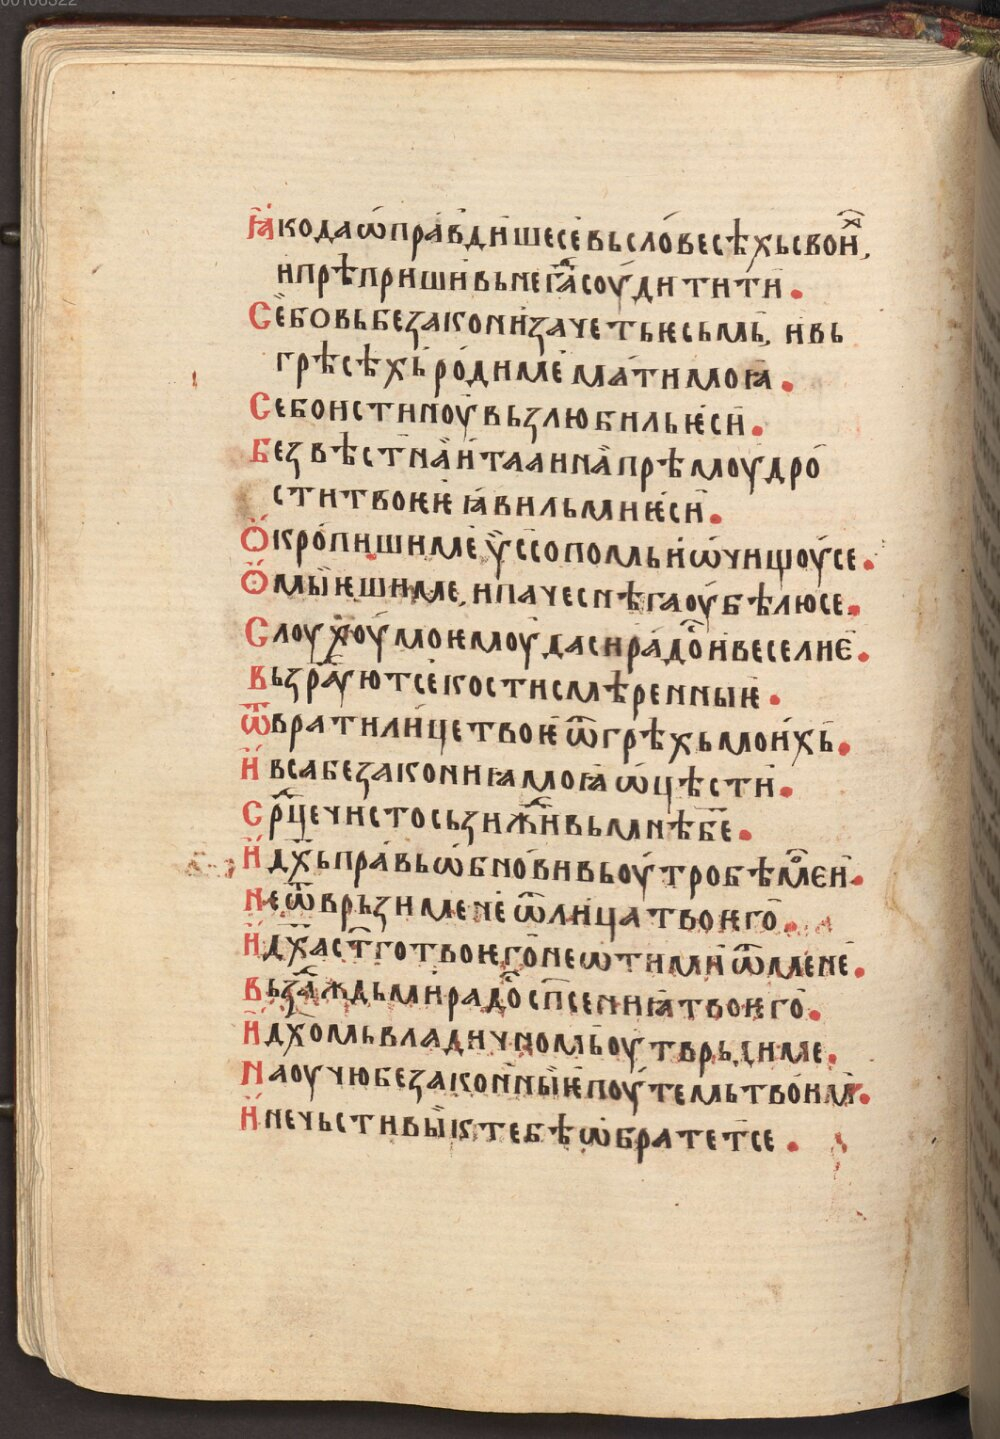 Ꙗкодаѡправдишесевьсловесѣхьсвоиⷯ,
ипрѣпришивьнегⷣасоудитити.
Себовьбезаконизачетьѥсьмь, ивь
грѣсѣхьродимематимоꙗ.
Себоистиноувьзлюбильѥси.
Безвѣстнаитааинапрѣмоудро
ститвоѥꙗвильмиѥси.
Окропишимеѵссопомьиѡчищоусе.
Омыѥшиме, ипачеснѣгаоубѣлюсе.
Слоухоумоѥмоудасирадоⷭивеселиѥ.
Вьзраⷣуютсекостисмѣренныѥ.
Ѿвратилицетвоѥѿгрѣхьмоихь.
Ивсабезакониꙗмоꙗѡцѣсти.
Срⷣцечистосьзижⷣивьмнѣбе.
Идхьправьѡбновивьоутробѣмоѥи.
Неѿврьзименеѿлицатвоѥго.
Идхастготвоѥгонеѡтимиѿмене.
Вьзⷣаждьмирадоⷭспсениꙗтвоѥго.
Идхомьвладичномьоутврьдиме.
Наоучюбезаконныѥпоутемьтвоим.
Инечьстивыѥктебѣѡбратетсе.